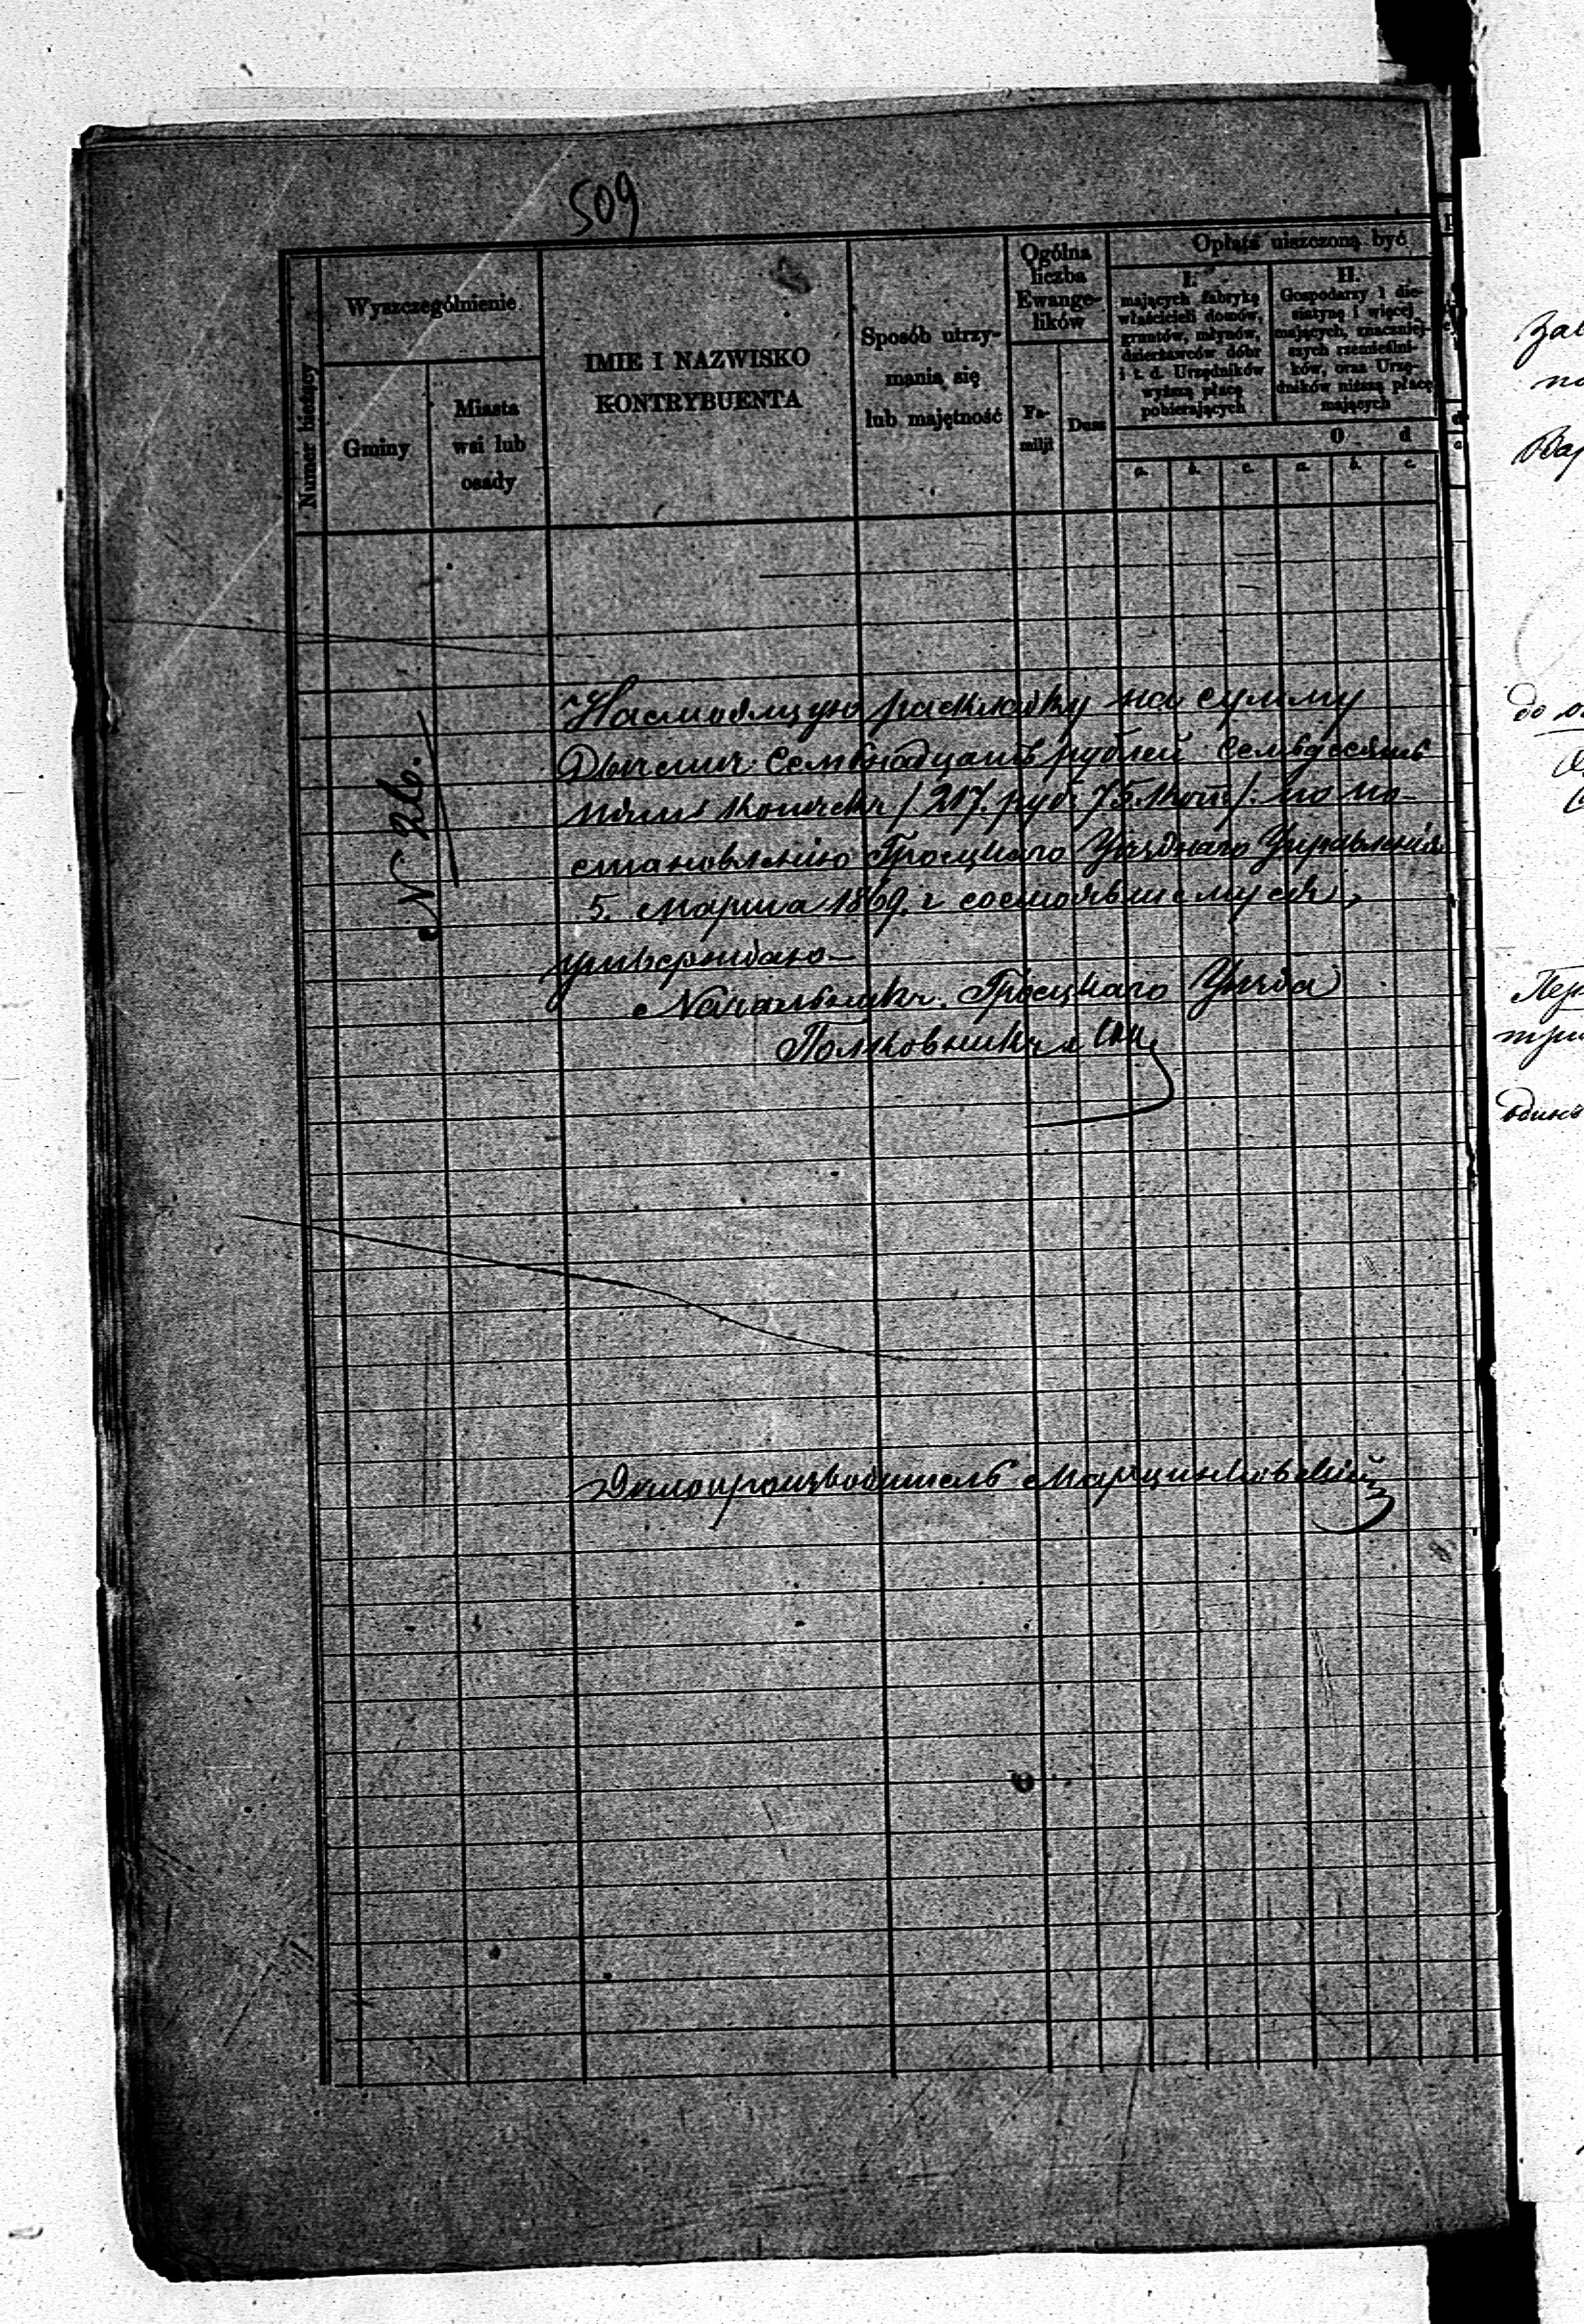 509
Numer bieżący
Wyszczególnienie
Gminy
Miasta
wsi lub
osady
IMIE I NAZWISKO
KONTRYBUENTA
Sposób utrzy-
mania się
lub majętność
Ogólna
liczba
Ewange-
lików
Fa-
milji
Dusz
Opłata uiszczoną być
I.
mających fabrykę
właścicieli domów,
gruntów, młynów,
dzierżawców dóbr
i t. d. Urzędników
wyższą płacę
pobierających
II.
Gospodarzy 1 die-
siatynę i więcej
mających, znaczniej-
szych rzemieślni-
ków, oraz Urzę-
dników niższą płacę
mających
O d
a. b. c. a. b. c.
N 26.
Настоящую раскладку на сумму
Двѣсти Семнадцать рублей Семьдесятъ
пять копѣекъ /217. руб. 75. коп/. по по-
становленію Гроецкаго Уѣзднаго Управленія
5. Марта 1869. г состоявшемуся,
утверждаю
Начальникъ Гроецкаго Уѣзда
Полковникъ
Дѣлопроизводитель Марцинковскій